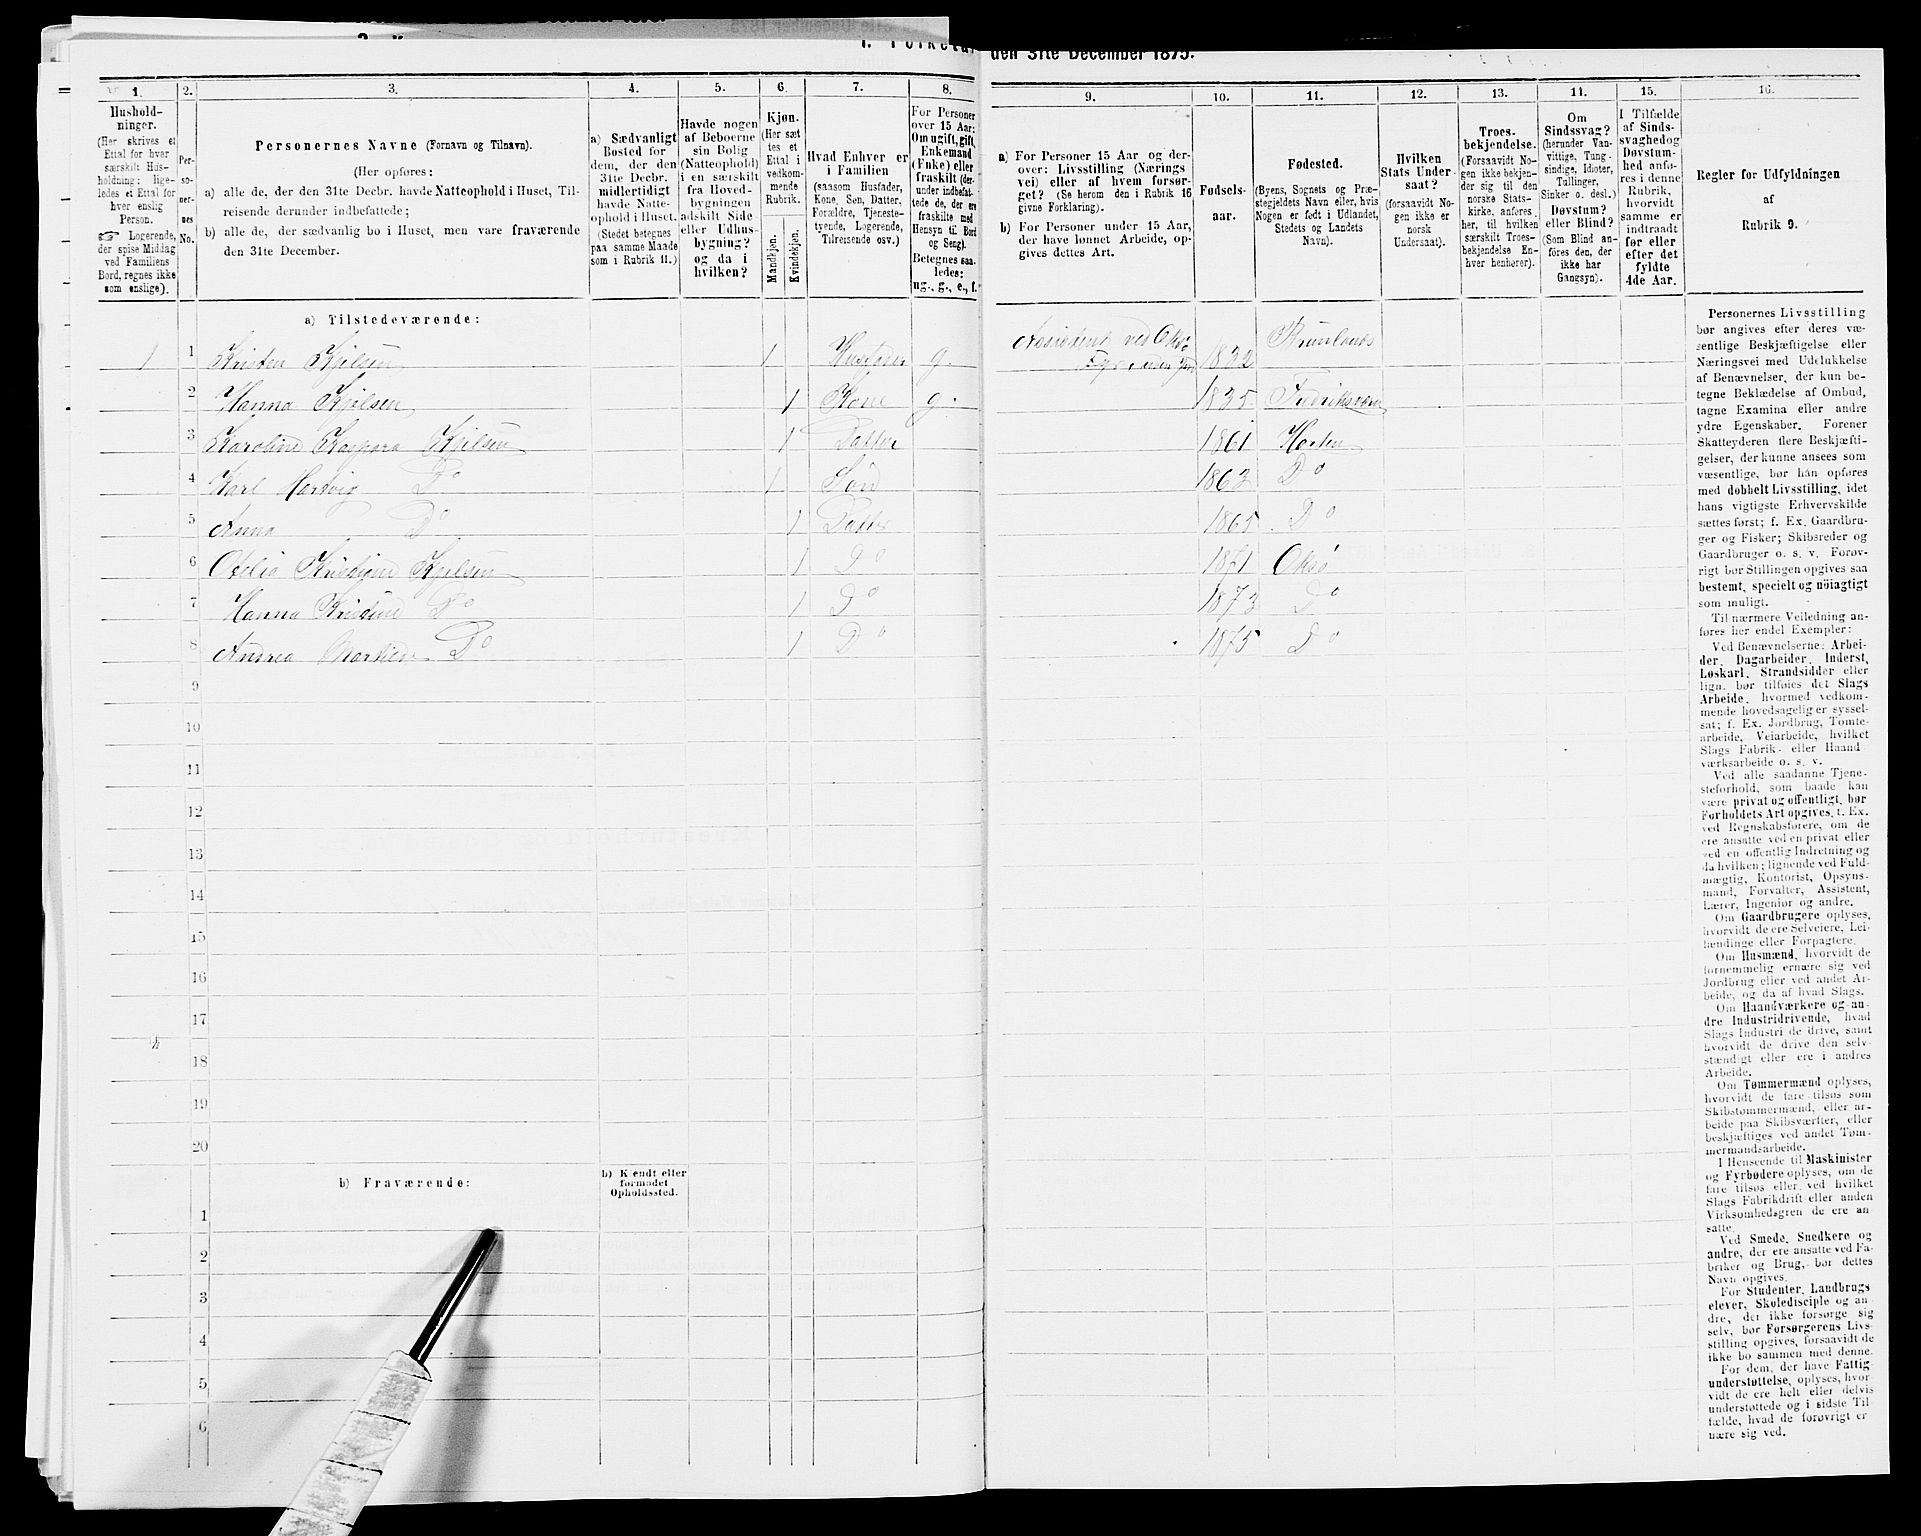 den 31te December 1875.
1.
2.
3.
4.
5.
6.
7.
8.
9.
10.
11.
12.
13.
11.
15.
16.
Hushold-
ninger.
(Her skrives et
Ettal for hver
særskilt Hus-
holdning; lige-
ledes et Ettal for
hver enslig
Person.
☞ Logerende,
der spise Middag
ved Familiens
Bord, regnes ikke
som enslige).
Per-
so-
ner-
nes
No.
Personernes Navne (Fornavn og Tilnavn).
(Her opføres:
a) alle de, der den 31te Decbr. havde Natteophold i Huset, Til-
reisende derunder indbefattede;
b) alle de, der sædvanlig bo i Huset, men vare fraværende
den 31te December.
a) Sædvanligt
Bosted for
dem, der den
31te Decbr.
midlertidigt
havde Natte-
ophold i Huset.
(Stedet betegnes
paa samme Maade
som i Rubrik 11.)
Havde nogen
af Beboerne
sin Bolig
(Natteophold)
i en særskilt
fra Hoved-
bygningen
adskilt Side-
eller Udhus-
bygning?
og da i
hvilken?
Kjøn.
(Her sæt
tes et
Ettal i
vedkom-
mende
Rubrik.
Mandkjøn.
Kvindekjøn.
Hvad Enhver er
i Familien
(saasom Husfader,
Kone, Søn, Datter,
Forældre, Tjeneste-
tyende, Logerende,
Tilreisende osv.)
For Personer
over 15 Aar:
Om ugift, gift,
Enkemand
(Enke) eller
fraskilt (der-
under indbefat-
tede de, der ere
fraskilte med
Hensyn til Bord
og Seng).
Betegnes saa-
ledes:
ug., g., e., f.
a) For Personer 15 Aar og der-
over: Livsstilling (Nærings
vei) eller af hvem forsør-
get? (Se herom den i Rubrik 16
givne Forklaring).
b) For Personer under 15 Aar,
der have lønnet Arbeide, op-
gives dettes Art.
Fødsels-
aar.
Fødested.
(Byens, Sognets og Præ-
stegjeldets Navn eller, hvis
Nogen er født i Udlandet,
Stedets og Landets
Navn).
Hvilken
Stats Under
saat?
(forsaavidt No-
gen ikke er
norsk
Undersaat).
Troes-
bekjendelse.
(Forsaavidt No-
gen ikke bekjen-
der sig til den
norske Stats-
kirke, anføres
her, til hvilken
særskilt Troes-
bekjendelse En-
hver henhører).
Om
Sindssvag?
(herunder Van-
vittige, Tung-
sindige, Idioter,
Tullinger,
Sinker o. desl.)
Døvstum?
eller Blind?
(Som Blind an-
føres den, der
ikke har
Gangsyn).
I Tilfælde
af Sinds-
svaghed og
Døvstum-
hed anfø-
res i denne
Rubrik,
hvorvidt
samme er
indtraadt
før eller
efter det
fyldte
4de Aar.
Regler for Udfyldningen
af
Rubrik 9.
a) Tilstedeværende:
1 1 Kristen Kjelsen 1 Husfader g. Assistent ved Oksø 1832
2 Hanna Kjelsen 1 Kone g. 1835 Fredriksværn
3 Karoline Kaspara Kjelsen 1 Datter 1861 Horten
4 Karl Hartvig Do 1 Søn 1863 Do
5 Anna Do 1 Datter 1865 Do
6 Otelia Kristiane Kjelsen 1 Do 1871 Oksø
7 Hanna Kristine Do 1 Do 1873 Do
8 Andrea Do 1 Do 1875 Do
9
10
11
12
13
14
15
16
17
18
19
20
b) Fraværende:
b) Kjendt eller
formodet
Opholdssted.
1
2
3
4
5
6
Personernes Livsstilling
bør angives efter deres væ-
sentlige Beskjæftigelse eller
Næringsvei med Udelukkelse
af Benævnelser, der kun be-
tegne Beklædelse af Ombud,
tagne Examina eller andre
ydre Egenskaber. Forener
Skatteyderen flere Beskjæfti-
gelser, der kunne ansees som
væsentlige, bør han opføres
med dobbelt Livsstilling, idet
hans vigtigste Erhvervskilde
sættes først; f. Ex. Gaardbru-
ger og Fisker; Skibsreder og
Gaardbruger o. s. v. Forøv-
rigt bør Stillingen opgives saa
bestemt, specielt og nöiagtigt
som muligt.
Til nærmere Veiledning an-
føres her endel Exempler:
Ved Benævnelserne: Arbei-
der, Dagarbeider, Inderst,
Løskarl, Strandsidder eller
lign. bør tilføies det Slags
Arbeide, hvormed vedkom-
mende hovedsagelig er syssel-
sat; f. Ex. Jordbrug, Tomte-
arbeide, Veiarbeide, hvilket
Slags Fabrik- eller Haand
værksarbeide o. s. v.
Ved alle saadanne Tjene-
steforhold, som baade kan
være privat og offentligt, bør
Forholdets Art opgives, t. Ex.
ved Regnskabsførere, om de
ere ansatte ved en privat eller
ved en offentlig Indretning og
da hvilken; lignende ved Fuld-
mægtig, Kontorist, Opsyns-
mand, Forvalter, Assistent,
Lærer, Ingeniør og andre.
Om Gaardbrugere oplyses,
hvorvidt de ere Selveiere, Lei-
lændinge eller Forpagtere.
Om Husmænd, hvorvidt de
fornemmelig ernære sig ved
Jordbrug eller ved andet Ar-
beide, og da af hvad Slags.
Om Haandværkere og an-
dre Industridrivende, hvad
Slags Industri de drive, samt
hvorvidt de drive den selv-
stændigt eller ere i andres
Arbeide.
Om Tømmermænd oplyses,
hvorvidt de fare tilsøs som
Skibstømmermænd, eller ar-
beide paa Skibsværfter, eller
beskjæftiges ved andet Tøm-
mermandsarbeide.
I Henseende til Maskinister
og Fyrbødere oplyses, om de
fare tilsøs eller ved hvilket
Slags Fabrikdrift eller anden
Virksomhedsgren de ere an-
satte.
Ved Smede, Snedkere og
andre, der ere ansatte ved Fa-
briker og Brug, bør dettes
Navn opgives.
For Studenter, Landbrugs
elever, Skoledisciple og an-
dre, der ikke forsørge sig
selv, bør Forsørgerens Livs-
stilling opgives, forsaavidt de
ikke bo sammen med denne.
For dem, der have Fattig-
understøttelse, oplyses, hvor-
vidt de ere helt eller delvis
understøttede og i sidste Til-
fælde, hvad de forøvrigt er
nære sig ved.